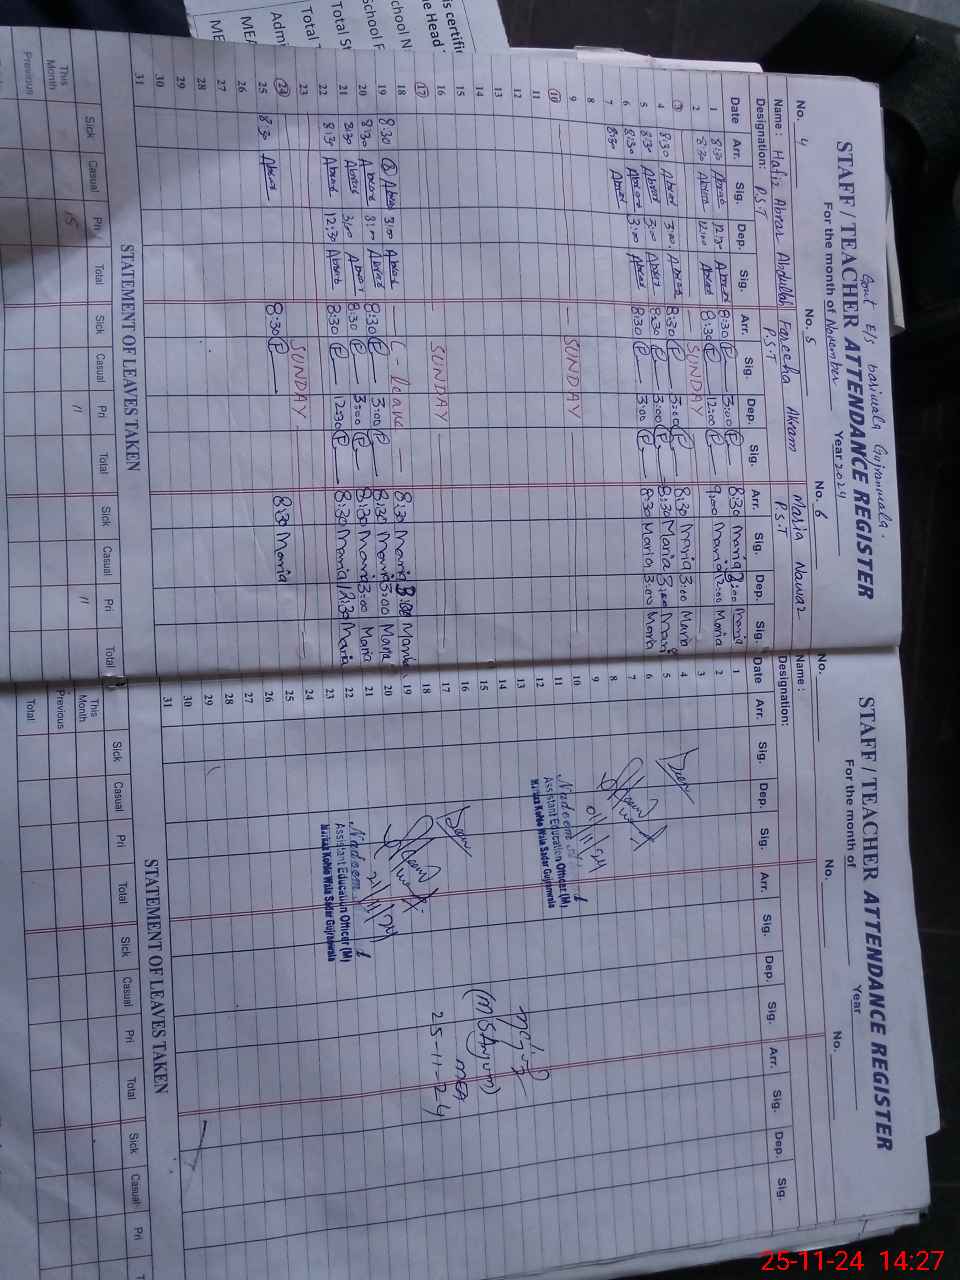 Govt E/S Gujranwala.
STAFF / TEACHER ATTENDANCE REGISTER
For the month of November Year 2024
No. 4 No. 5 No. 6
Name : Hafiz Abrar Abdullah Fareeha Akram Maria Nawaz
Designation: P.S.T P.S.T P.S.T
Date Arr. Sig. Dep. Sig. Arr. Sig. Dep. Sig. Arr. Sig. Dep. Sig.
1 8:30 Abrar 12:30 Abrar 8:30 P 3:00 P 8:30 Maria 3:00 Maria
2 8:30 Abrar 12:00 Abrar 8:30 P 12:00 P 9:00 Maria 12:00 Maria
3 SUNDAY
4 8:30 Abrar 3:00 Abrar 8:30 P 3:00 P 8:30 Maria 3:00 Maria
5 8:30 Abrar 3:00 Abrar 8:30 P 3:00 P 8:30 Maria 3:00 Maria
6 8:30 Abrar 3:00 Abrar 8:30 P 3:00 P 8:30 Maria 3:00 Maria
7 8:30 Abrar
8
9
10 SUNDAY
11
12
13
14
15
16
17 SUNDAY
18 C-leave 8:30 Maria 3:00
19 8:30 Abrar 3:00 Abrar 8:30 P 3:00 P 8:30 Maria 3:00 Maria
20 8:30 Abrar Abrar 8:30 P 3:00 P 8:30 Maria 3:00 Maria
21 8:30 Abrar 3:00 Abrar 8:30 P 12:30 P 8:30 Maria 12:30 Maria
22 8:30 Abrar 12:30 Abrar
23
24 SUNDAY
25 8:30 Abrar 8:30 P 8:30 Maria
26
27
28
29
30
31
STATEMENT OF LEAVES TAKEN
Sick Casual Pri Total Sick Casual Pri Total Sick Casual Pri Total
This Month 15 11 11
Previous
STAFF / TEACHER ATTENDANCE REGISTER
For the month of Year
No. No. No.
Name :
Designation:
Date Arr. Sig. Dep. Sig. Arr. Sig. Dep. Sig. Arr. Sig. Dep. Sig.
1
2
3
4
5
6
7
8
9
10
11
12
13
14
15
16
17
18
19
20
21
22
23
24
25
26
27
28
29
30
31
Nadeem
Assistant Education Officer (M)
Markaz Kohlo Wala Sadar Gujranwala
21/11/24
Nadeem
Assistant Education Officer (M)
Markaz Kohlo Wala Sadar Gujranwala
(M S Anjum)
MEA
25-11-24
STATEMENT OF LEAVES TAKEN
Sick Casual Pri Total Sick Casual Pri Total Sick Casual Pri
This Month
Previous
Total
25-11-24 14:27